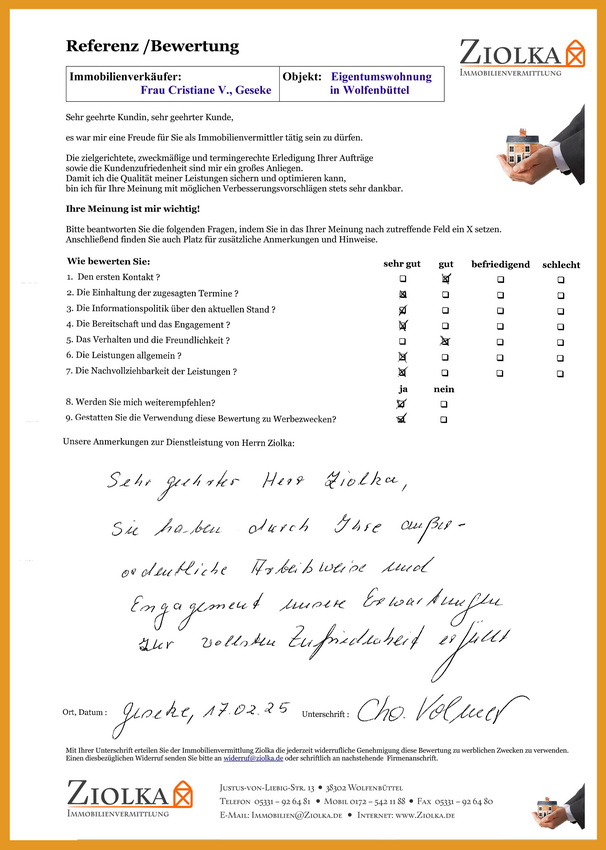 Referenz /Bewertung
ZIOLKA
IMMOBILIENVERMITTLUNG
Immobilienverkäufer:
Frau Cristiane V., Geseke
Objekt: Eigentumswohnung
in Wolfenbüttel
Sehr geehrte Kundin, sehr geehrter Kunde,
es war mir eine Freude für Sie als Immobilienvermittler tätig sein zu dürfen.
Die zielgerichtete, zweckmäßige und termingerechte Erledigung Ihrer Aufträge
sowie die Kundenzufriedenheit sind mir ein großes Anliegen.
Damit ich die Qualität meiner Leistungen sichern und optimieren kann,
bin ich für Ihre Meinung mit möglichen Verbesserungsvorschlägen stets sehr dankbar.
Ihre Meinung ist mir wichtig!
Bitte beantworten Sie die folgenden Fragen, indem Sie in das Ihrer Meinung nach zutreffende Feld ein X setzen.
Anschließend finden Sie auch Platz für zusätzliche Anmerkungen und Hinweise.
Wie bewerten Sie: sehr gut gut befriedigend schlecht
1. Den ersten Kontakt ?
2. Die Einhaltung der zugesagten Termine ?
3. Die Informationspolitik über den aktuellen Stand ?
4. Die Bereitschaft und das Engagement ?
5. Das Verhalten und die Freundlichkeit ?
6. Die Leistungen allgemein ?
7. Die Nachvollziehbarkeit der Leistungen ?
ja nein
8. Werden Sie mich weiterempfehlen?
9. Gestatten Sie die Verwendung diese Bewertung zu Werbezwecken?
Unsere Anmerkungen zur Dienstleistung von Herrn Ziolka:
Sehr geehrter Herr Ziolka,
Sie haben durch Ihre außer-
ordentliche Arbeitsweise und
Engagement unsere Erwartungen
zur vollsten Zufriedenheit erfüllt
Ort, Datum : Geseke, 17.02.25 Unterschrift : Chr. Volmer
Mit Ihrer Unterschrift erteilen Sie der Immobilienvermittlung Ziolka die jederzeit widerrufliche Genehmigung diese Bewertung zu werblichen Zwecken zu verwenden.
Einen diesbezüglichen Widerruf senden Sie bitte an widerruf@ziolka.de oder schriftlich an nachstehende Firmenanschrift.
ZIOLKA
IMMOBILIENVERMITTLUNG
JUSTUS-VON-LIEBIG-STR. 13 • 38302 WOLFENBÜTTEL
TELEFON 05331 – 92 64 81 • MOBIL 0172 – 542 11 88 • FAX 05331 – 92 64 80
E-MAIL: IMMOBILIEN@ZIOLKA.DE • INTERNET: WWW.ZIOLKA.DE